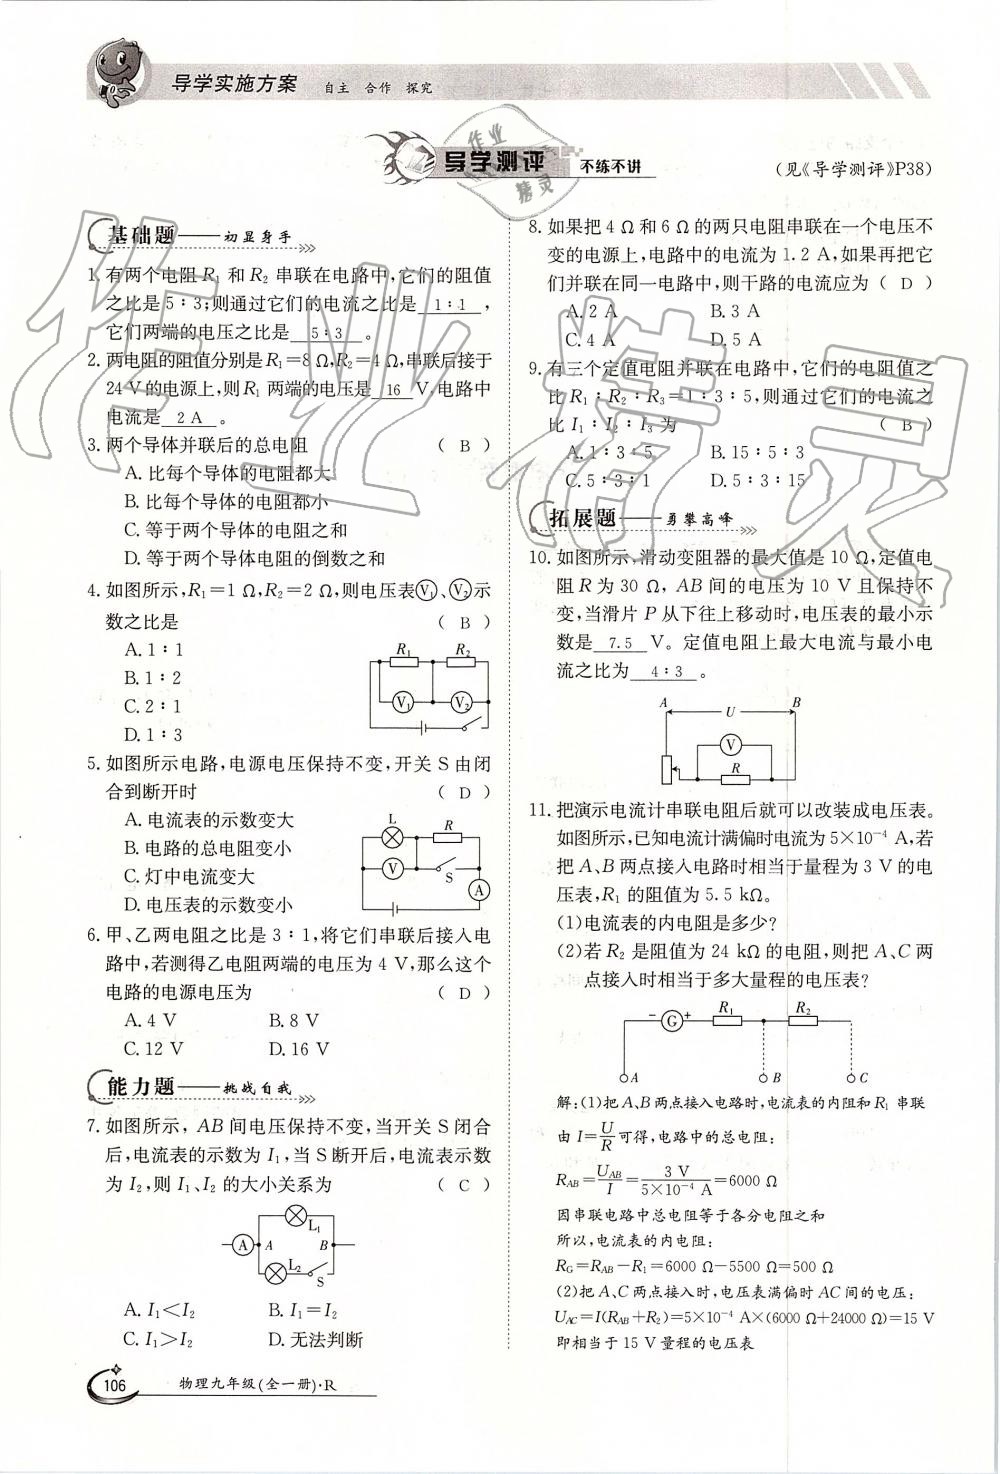 导学实施方案 自主 合作 探究
导学测评 不练不讲
(见《导学测评》P38)
基础题——初显身手
1. 有两个电阻 R₁ 和 R₂ 串联在电路中,它们的阻值
之比是 5∶3;则通过它们的电流之比是 1∶1 ,
它们两端的电压之比是 5∶3 。
2. 两电阻的阻值分别是R₁=8 Ω,R₂=4 Ω,串联后接于
24 V的电源上,则R₁ 两端的电压是 16 V,电路中
电流是 2 A 。
3. 两个导体并联后的总电阻 ( B )
A. 比每个导体的电阻都大
B. 比每个导体的电阻都小
C. 等于两个导体的电阻之和
D. 等于两个导体电阻的倒数之和
4. 如图所示,R₁=1 Ω,R₂=2 Ω,则电压表V₁、V₂示
数之比是 ( B )
A. 1∶1
B. 1∶2
C. 2∶1
D. 1∶3
R₁ R₂
V₁ V₂
5. 如图所示电路,电源电压保持不变,开关 S 由闭
合到断开时 ( D )
A. 电流表的示数变大
B. 电路的总电阻变小
C. 灯中电流变大
D. 电压表的示数变小
L R
V S
A
6. 甲、乙两电阻之比是 3∶1,将它们串联后接入电
路中,若测得乙电阻两端的电压为 4 V,那么这个
电路的电源电压为 ( D )
A. 4 V B. 8 V
C. 12 V D. 16 V
能力题——挑战自我
7. 如图所示,AB 间电压保持不变,当开关 S 闭合
后,电流表的示数为 I₁,当 S 断开后,电流表示数
为 I₂,则 I₁、I₂ 的大小关系为 ( C )
L₁
A A B
L₂ S
A. I₁<I₂ B. I₁=I₂
C. I₁>I₂ D. 无法判断
106 物理九年级(全一册)·R
8. 如果把 4 Ω 和 6 Ω 的两只电阻串联在一个电压不
变的电源上,电路中的电流为 1.2 A,如果再把它
们并联在同一电路中,则干路的电流应为 ( D )
A. 2 A B. 3 A
C. 4 A D. 5 A
9. 有三个定值电阻并联在电路中,它们的电阻值之
比 R₁∶R₂∶R₃=1∶3∶5,则通过它们的电流之
比 I₁∶I₂∶I₃ 为 ( B )
A. 1∶3∶5 B. 15∶5∶3
C. 5∶3∶1 D. 5∶3∶15
拓展题——勇攀高峰
10. 如图所示,滑动变阻器的最大值是 10 Ω,定值电
阻 R 为 30 Ω,AB 间的电压为 10 V 且保持不
变,当滑片 P 从下往上移动时,电压表的最小示
数是 7.5 V。定值电阻上最大电流与最小电
流之比为 4∶3 。
A U B
V
R
11. 把演示电流计串联电阻后就可以改装成电压表。
如图所示,已知电流计满偏时电流为 5×10⁻⁴ A,若
把 A、B 两点接入电路时相当于量程为 3 V 的电
压表,R₁ 的阻值为 5.5 kΩ。
(1)电流表的内电阻是多少?
(2)若 R₂ 是阻值为 24 kΩ 的电阻,则把 A、C 两
点接入时相当于多大量程的电压表?
- G + R₁ R₂
A B C
解:(1)把 A、B 两点接入电路时,电流表的内阻和 R₁ 串联
由 I=U/R 可得,电路中的总电阻:
R_AB=U_AB/I=3 V/(5×10⁻⁴ A)=6000 Ω
因串联电路中总电阻等于各分电阻之和
所以,电流表的内电阻:
R_G=R_AB-R₁=6000 Ω-5500 Ω=500 Ω
(2)把 A、C 两点接入时,电压表满偏时 AC 间的电压:
U_AC=I(R_AB+R₂)=5×10⁻⁴ A×(6000 Ω+24000 Ω)=15 V
即相当于 15 V 量程的电压表
作业精灵
作业
精灵